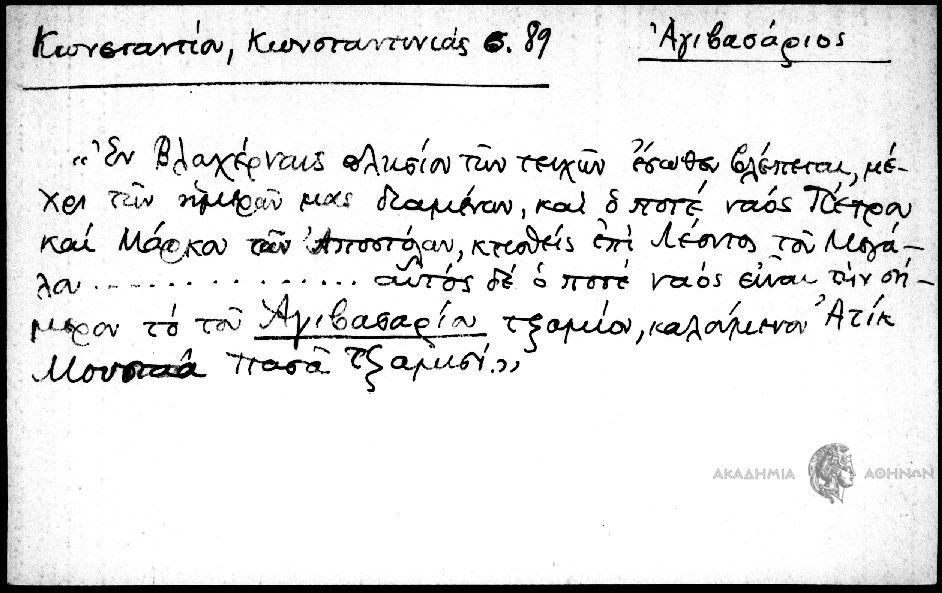 Κωνσταντίου, Κωνσταντινιάς σ. 89
Ἁγιβασάριος
„Ἐν Βλαχέρναις πλησίον τῶν τειχῶν ἔσωθεν βλέπεται, μέ-
χρι τῶν ἡμερῶν μας διαμένων, καί ὁ ποτέ ναός Πέτρου
καί Μάρκου τῶν Ἀποστόλων, κτισθείς ἐπί Λέοντος τοῦ Μεγά-
λου .............. αὐτός δέ ὁ ποτέ ναός εἶναι τήν σή-
μερον τό τοῦ Ἁγιβασαρίου τζαμίον, καλούμενον Ἀτίκ
Μουσταφᾶ Πασᾶ τζαμισί."
ΑΚΑΔΗΜΙΑ ΑΘΗΝΩΝ